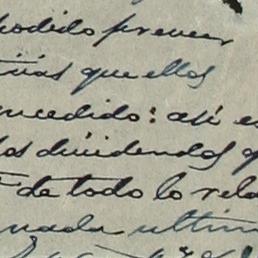 podido preveer
que ellos
ncedido: así es
los dividendos q
de todo lo rela
nada ultim